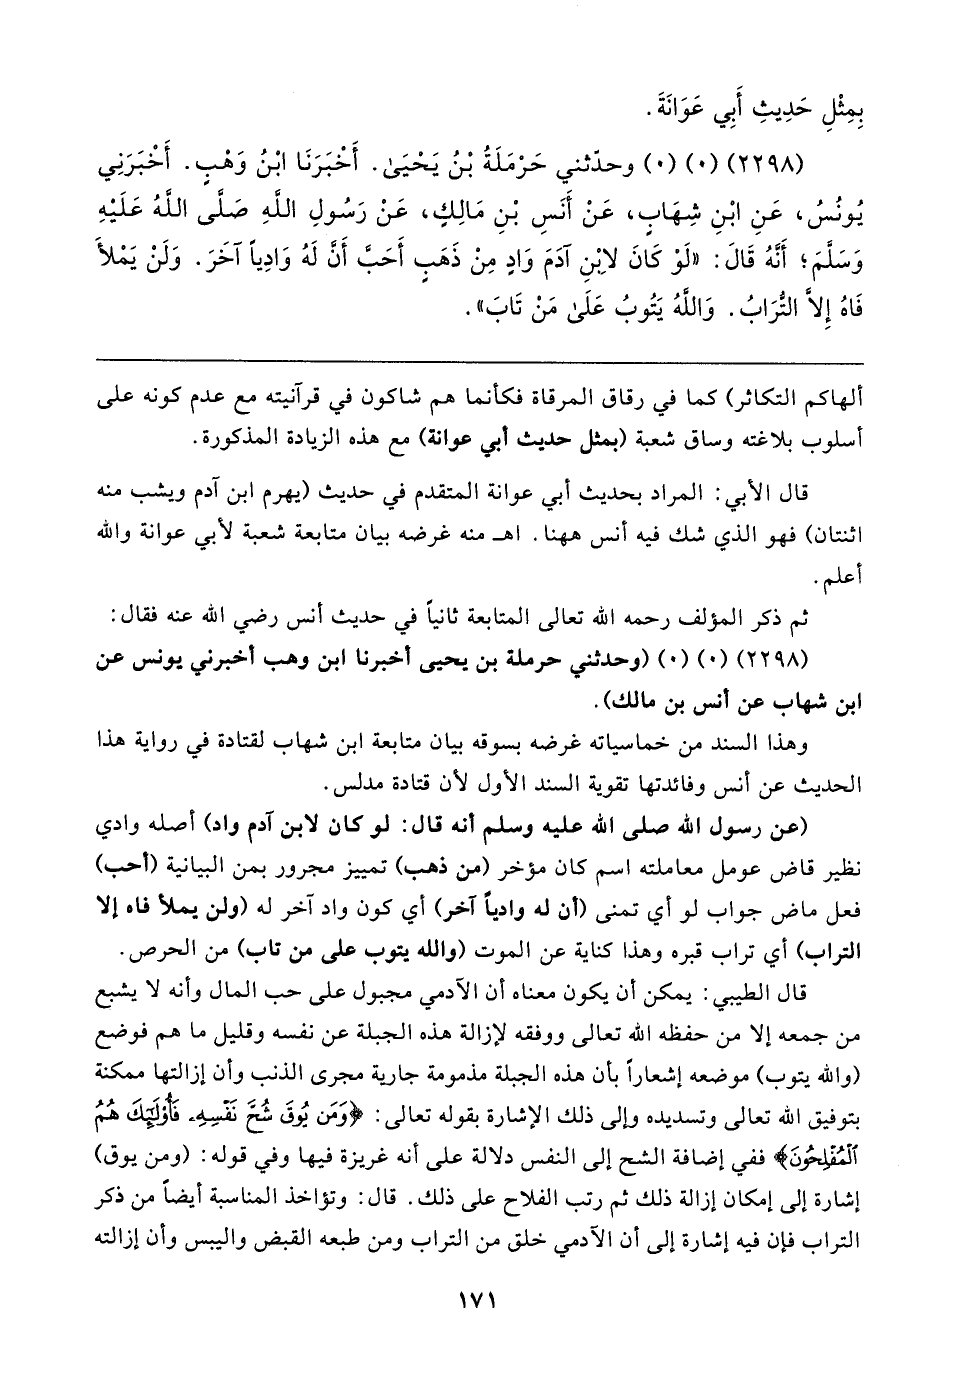 بِمِثْلِ حَدِيثِ أَبِي عَوَانَةَ.
(٢٢٩٨) (٠) (٠) وحدّثني حَرْمَلَةُ بْنُ يَحْيَىٰ. أَخْبَرَنَا ابْنُ وَهْبٍ. أَخْبَرَنِي
يُونُسُ، عَنِ ابْنِ شِهَابٍ، عَنْ أَنَسِ بْنِ مَالِكٍ، عَنْ رَسُولِ اللَّهِ صَلَّى اللَّهُ عَلَيْهِ
وَسَلَّمَ؛ أَنَّهُ قَالَ: «لَوْ كَانَ لابْنِ آدَمَ وَادٍ مِنْ ذَهَبٍ أَحَبَّ أَنَّ لَهُ وَادِياً آخَرَ. وَلَنْ يَمْلأَ
فَاهُ إِلاَّ التُّرَابُ. وَاللَّهُ يَتُوبُ عَلَىٰ مَنْ تَابَ».
ألهاكم التكاثر) كما في رقاق المرقاة فكأنما هم شاكون في قرآنيته مع عدم كونه على
أسلوب بلاغته وساق شعبة (بمثل حديث أبي عوانة) مع هذه الزيادة المذكورة.
قال الأبي: المراد بحديث أبي عوانة المتقدم في حديث (يهرم ابن آدم ويشب منه
اثنتان) فهو الذي شك فيه أنس ههنا. اهـ منه غرضه بيان متابعة شعبة لأبي عوانة والله
أعلم.
ثم ذكر المؤلف رحمه الله تعالى المتابعة ثانياً في حديث أنس رضي الله عنه فقال:
(٢٢٩٨) (٠) (٠) (وحدثني حرملة بن يحيى أخبرنا ابن وهب أخبرني يونس عن
ابن شهاب عن أنس بن مالك).
وهذا السند من خماسياته غرضه بسوقه بيان متابعة ابن شهاب لقتادة في رواية هذا
الحديث عن أنس وفائدتها تقوية السند الأول لأن قتادة مدلس.
(عن رسول الله صلى الله عليه وسلم أنه قال: لو كان لابن آدم واد) أصله وادي
نظير قاض عومل معاملته اسم كان مؤخر (من ذهب) تمييز مجرور بمن البيانية (أحب)
فعل ماض جواب لو أي تمنى (أن له وادياً آخر) أي كون واد آخر له (ولن يملأ فاه إلا
التراب) أي تراب قبره وهذا كناية عن الموت (والله يتوب على من تاب) من الحرص.
قال الطيبي: يمكن أن يكون معناه أن الآدمي مجبول على حب المال وأنه لا يشبع
من جمعه إلا من حفظه الله تعالى ووفقه لإزالة هذه الجبلة عن نفسه وقليل ما هم فوضع
(والله يتوب) موضعه إشعاراً بأن هذه الجبلة مذمومة جارية مجرى الذنب وأن إزالتها ممكنة
بتوفيق الله تعالى وتسديده وإلى ذلك الإشارة بقوله تعالى: ﴿وَمَن يُوقَ شُحَّ نَفْسِهِۦ فَأُوْلَٰٓئِكَ هُمُ
ٱلْمُفْلِحُونَ﴾ ففي إضافة الشح إلى النفس دلالة على أنه غريزة فيها وفي قوله: (ومن يوق)
إشارة إلى إمكان إزالة ذلك ثم رتب الفلاح على ذلك. قال: وتؤاخذ المناسبة أيضاً من ذكر
التراب فإن فيه إشارة إلى أن الآدمي خلق من التراب ومن طبعه القبض واليبس وأن إزالته
١٧١